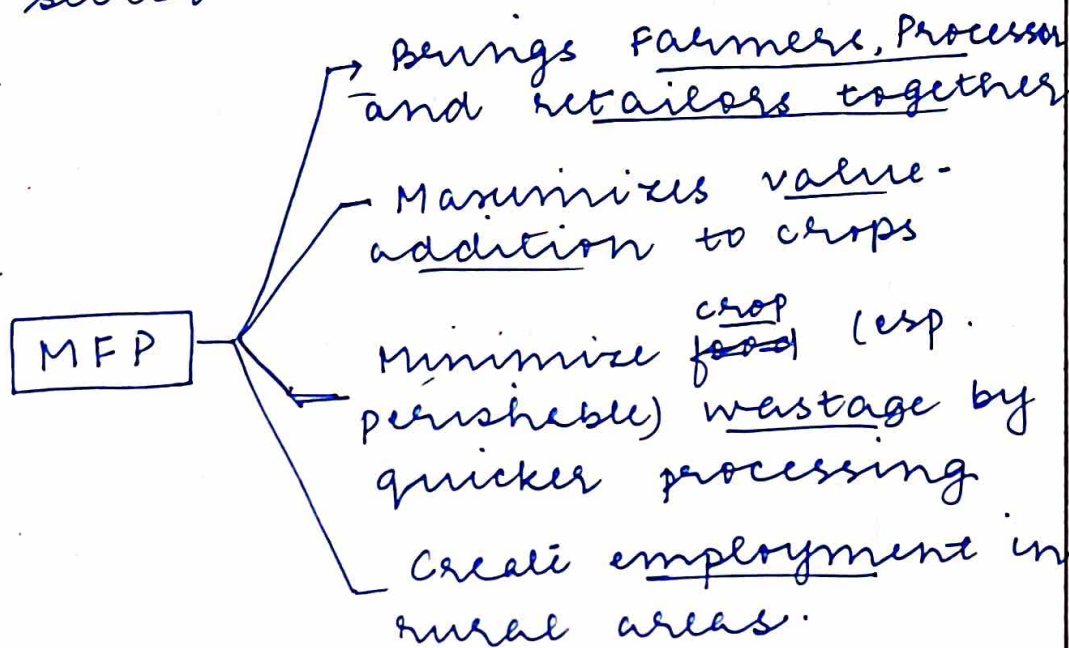 Brings Farmers, Processor
and retailors together
Maximizes value-
addition to crops
MFP
crop
Minimize food (esp.
perishable) wastage by
quicker processing
Create employment in
rural areas.